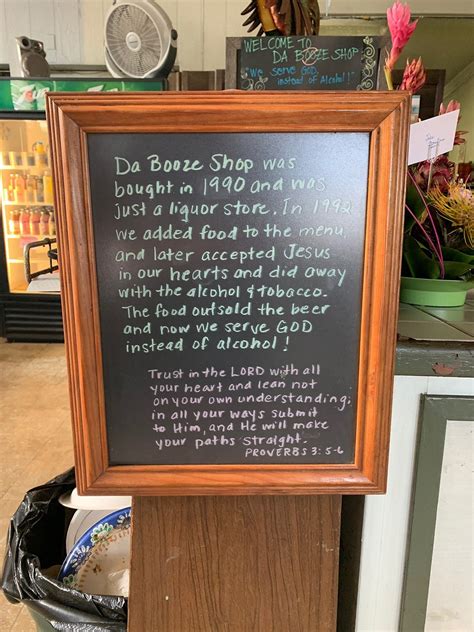 WELCOME TO DA BOOZE SHOP
"We serve GOD
instead of Alcohol!"
DA BOOZE SHOP was
bought in 1990 and was
just a liquor store. In 1992
we added food to the menu,
and later accepted Jesus
in our hearts and did away
with the alcohol & tobacco.
The food outsold the beer
and now we serve GOD
instead of alcohol!
Trust in the LORD with all
your heart and lean not
on your own understanding;
in all your ways submit
to Him, and He will make
your paths straight.
PROVERBS 3:5-6